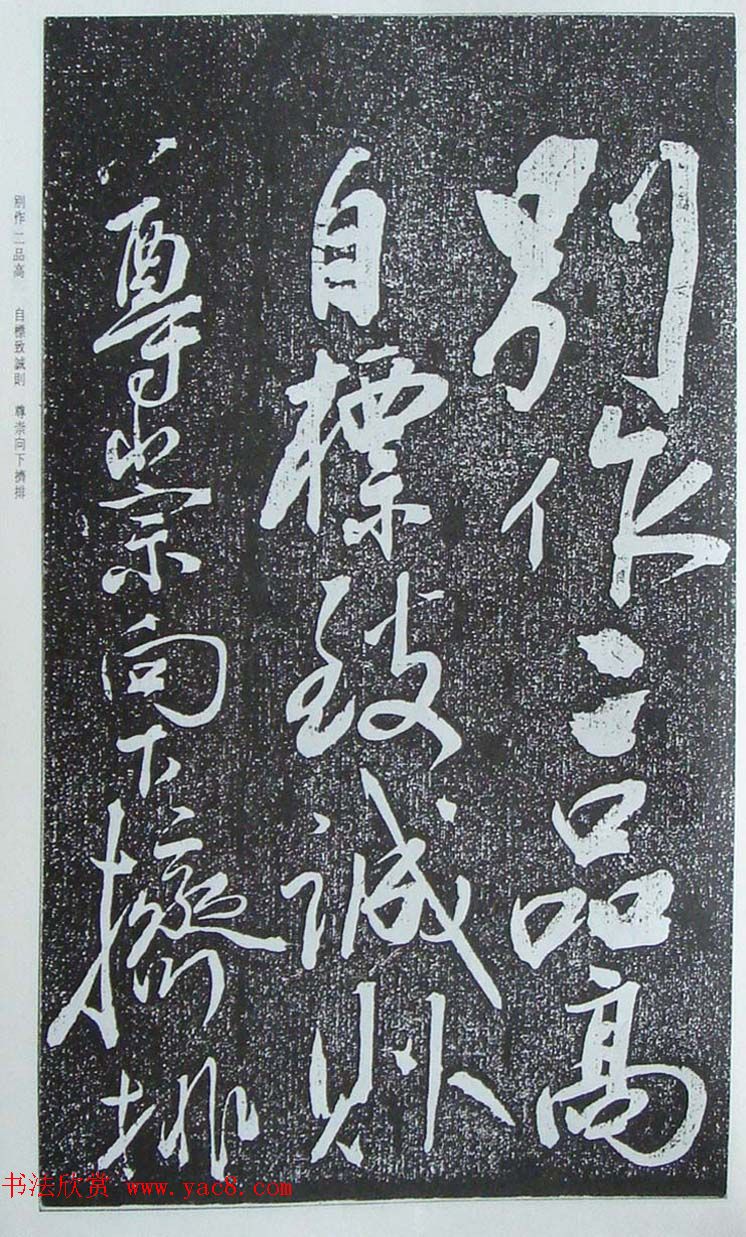 別作二品高
自標致誠則
尊崇向下擠排
別作二品高 自標致誠則 尊崇向下擠排
书法欣赏 www.yac8.com